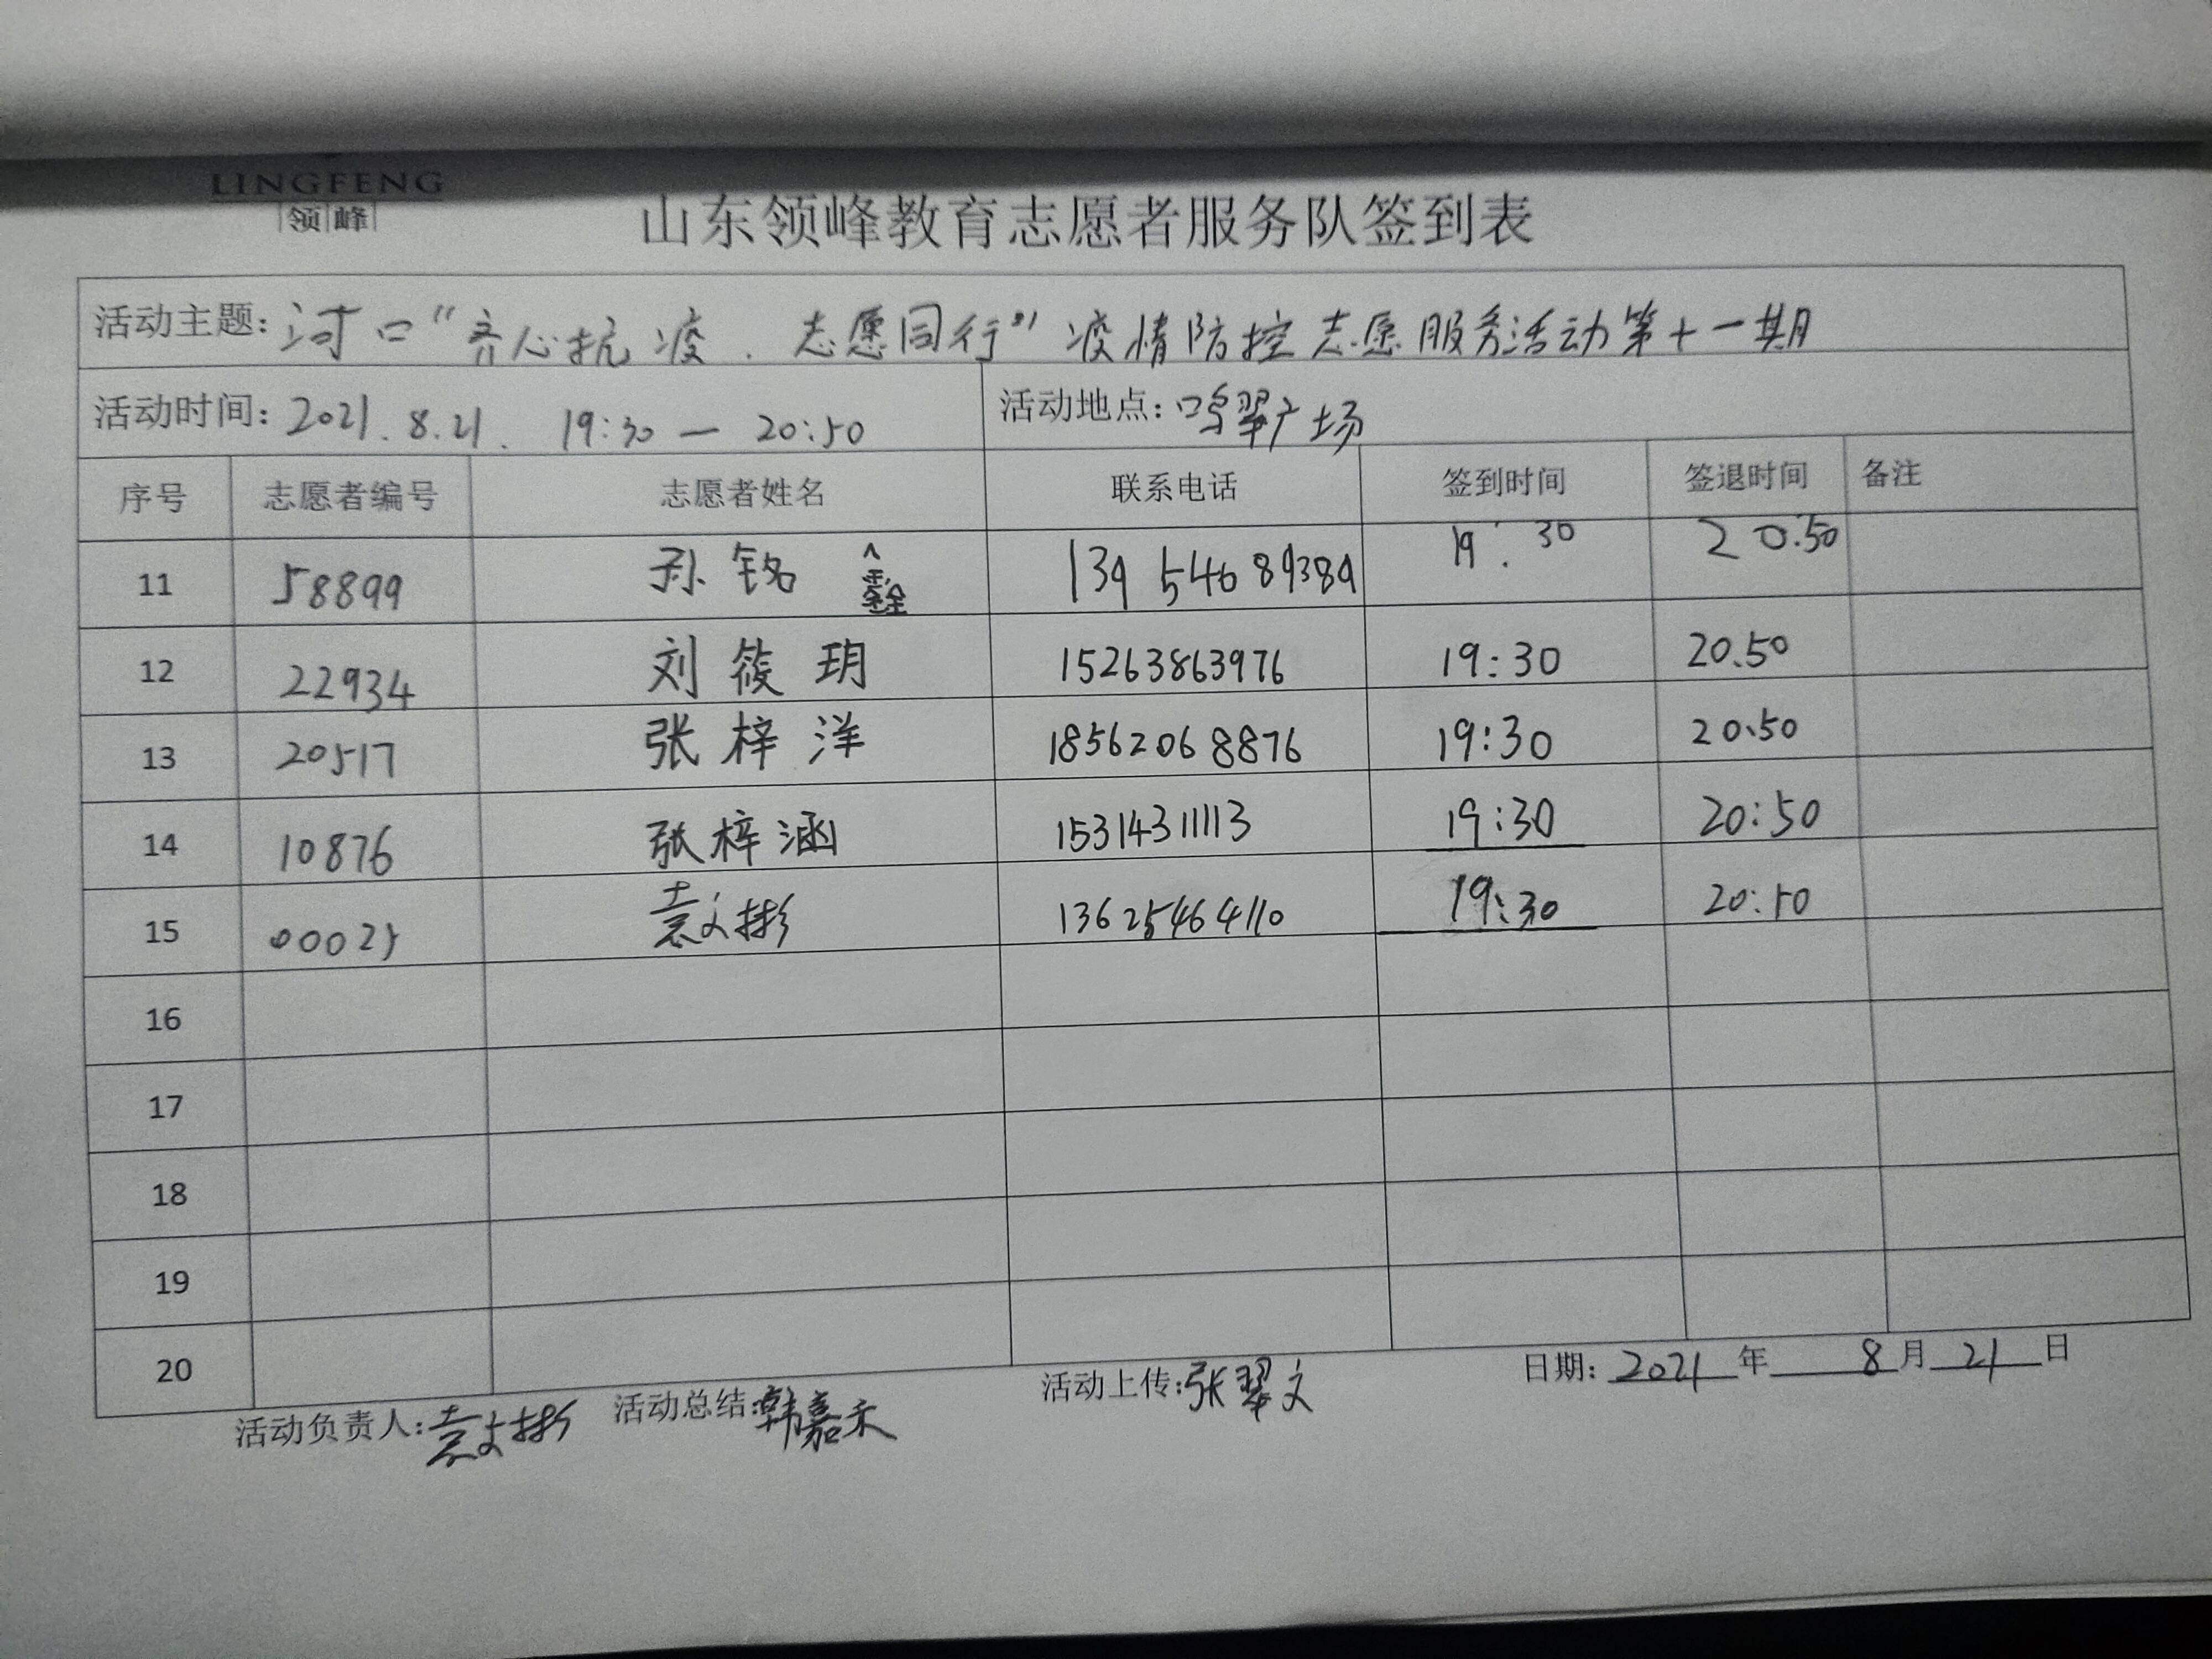 LINGFENG
领峰
山东领峰教育志愿者服务队签到表
活动主题: 河口“齐心抗疫．志愿同行”疫情防控志愿服务活动第十一期
活动时间: 2021.8.21. 19:30 — 20:50 活动地点: 鸣翠广场
序号 志愿者编号 志愿者姓名 联系电话 签到时间 签退时间 备注
11 58899 孙铭 13954689389 19:30 20.50
12 22934 刘筱玥 15263863976 19:30 20.50
13 20517 张梓洋 18562068876 19:30 20.50
14 10876 张梓涵 15314311113 19:30 20:50
15 00025 袁文彬 13625464110 19:30 20:50
16
17
18
19
20
活动负责人: 袁文彬 活动总结: 韩嘉禾 活动上传: 张翠文 日期: 2021 年 8 月 21 日